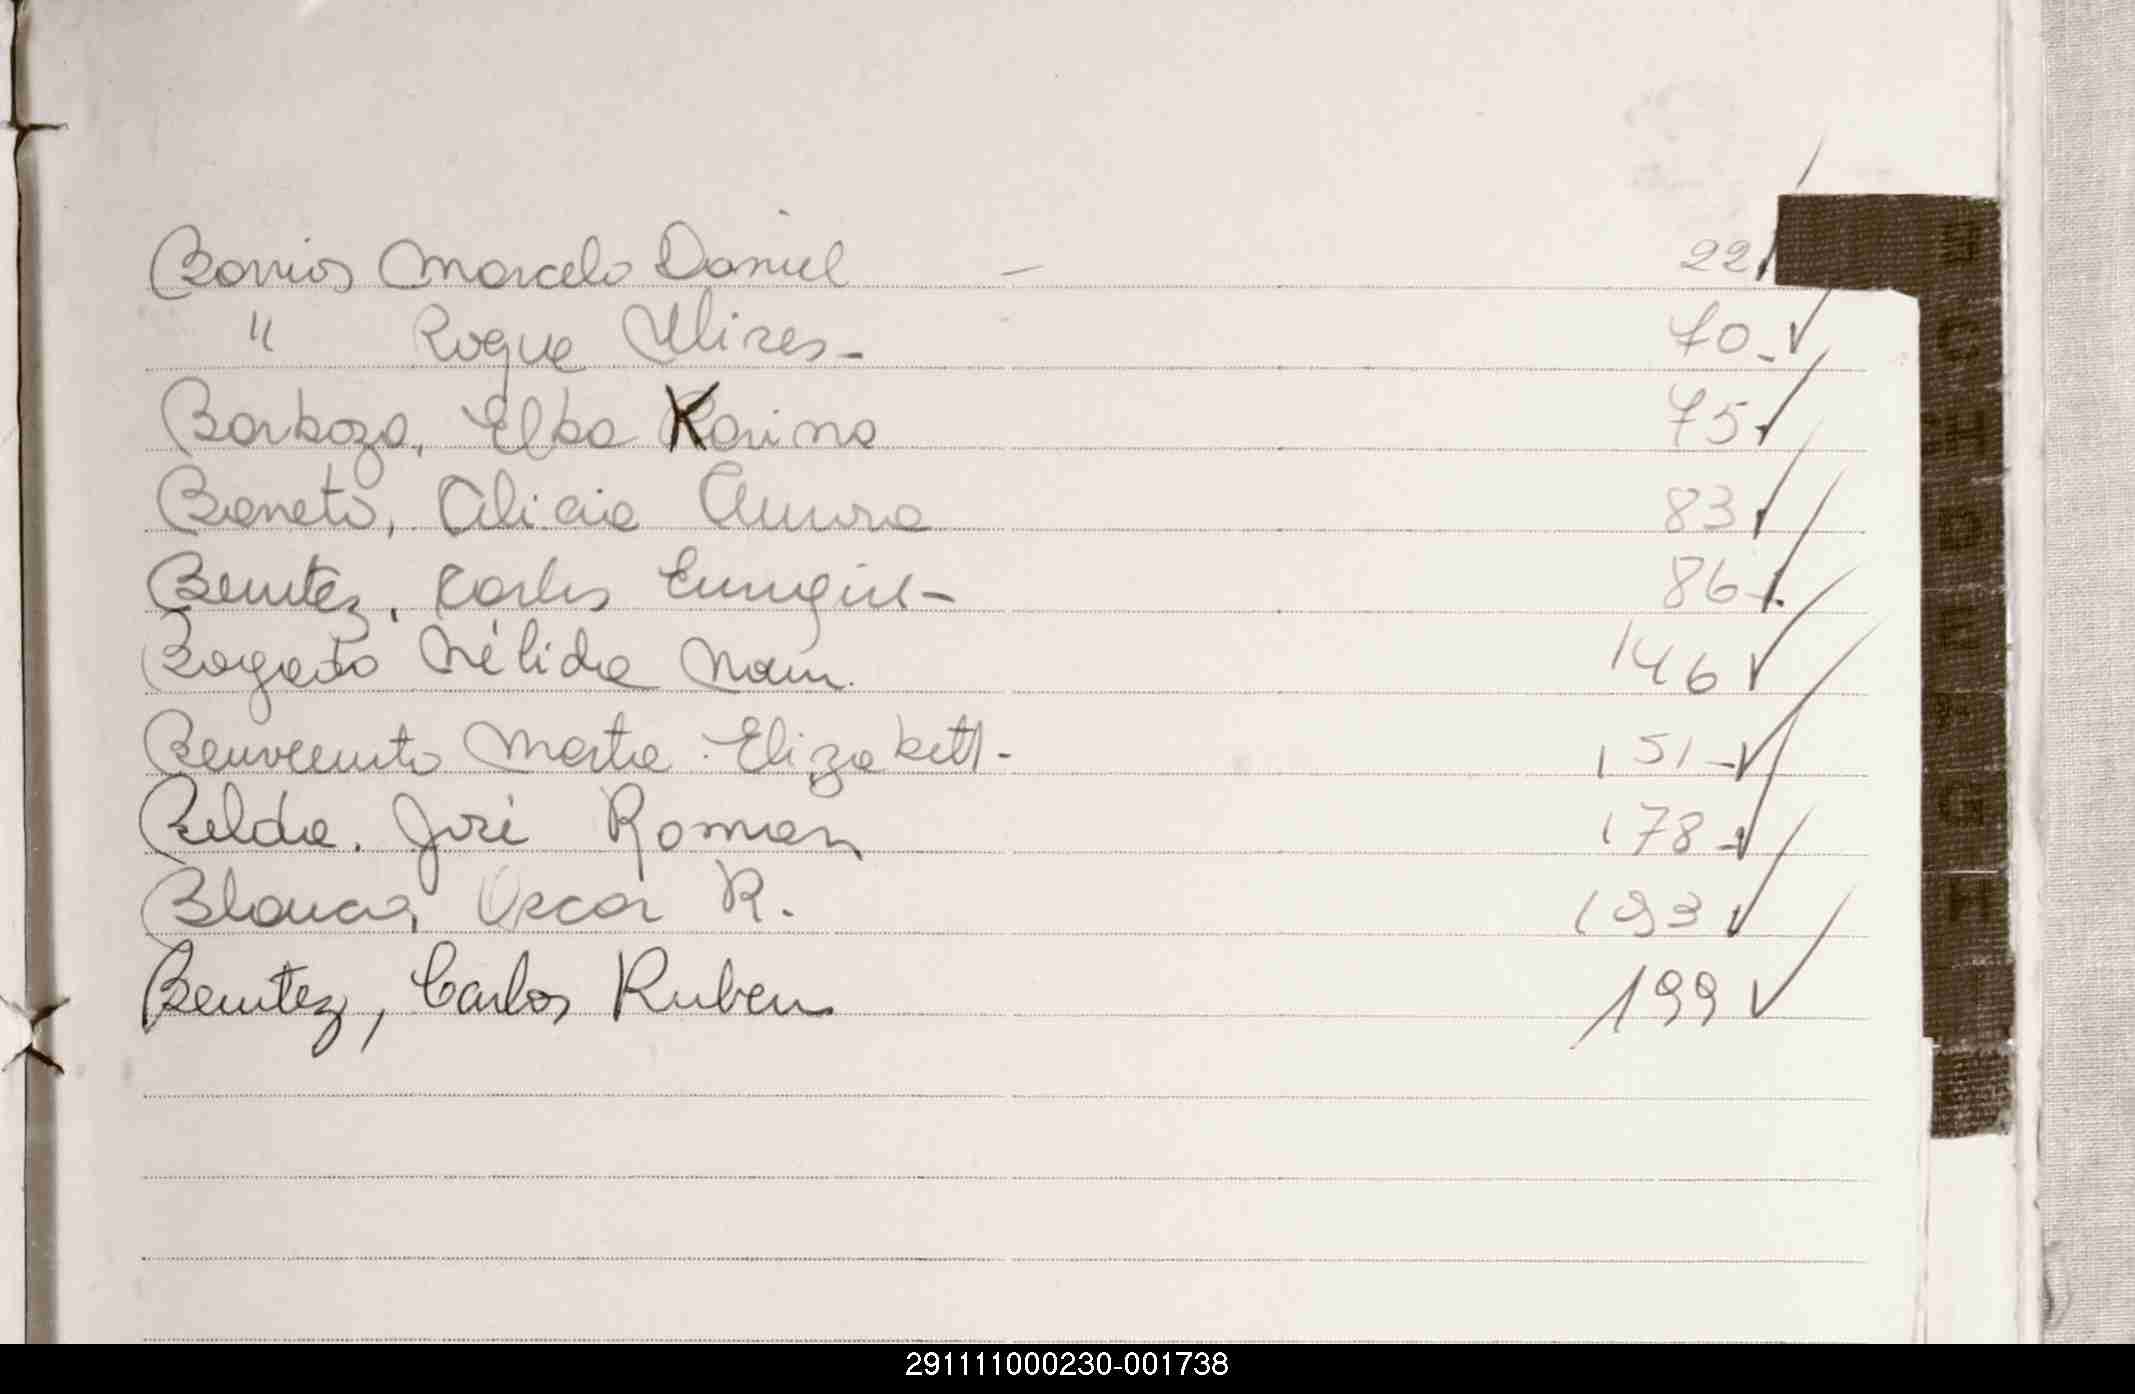 Barrios Marcelo Daniel - 22
" Roque Ulises - 70 -
Barboza, Elba Karina 75
Boneto, Alicia Aurora 83
Benitez, Carlos 86 -
Bogado Nélida 146
Benvenuto Marta Elizabeth - 151 -
Belda. José Roman 178 -
Blanco, Oscar R. 193
Benitez, Carlos Ruben 199
291111000230-001738